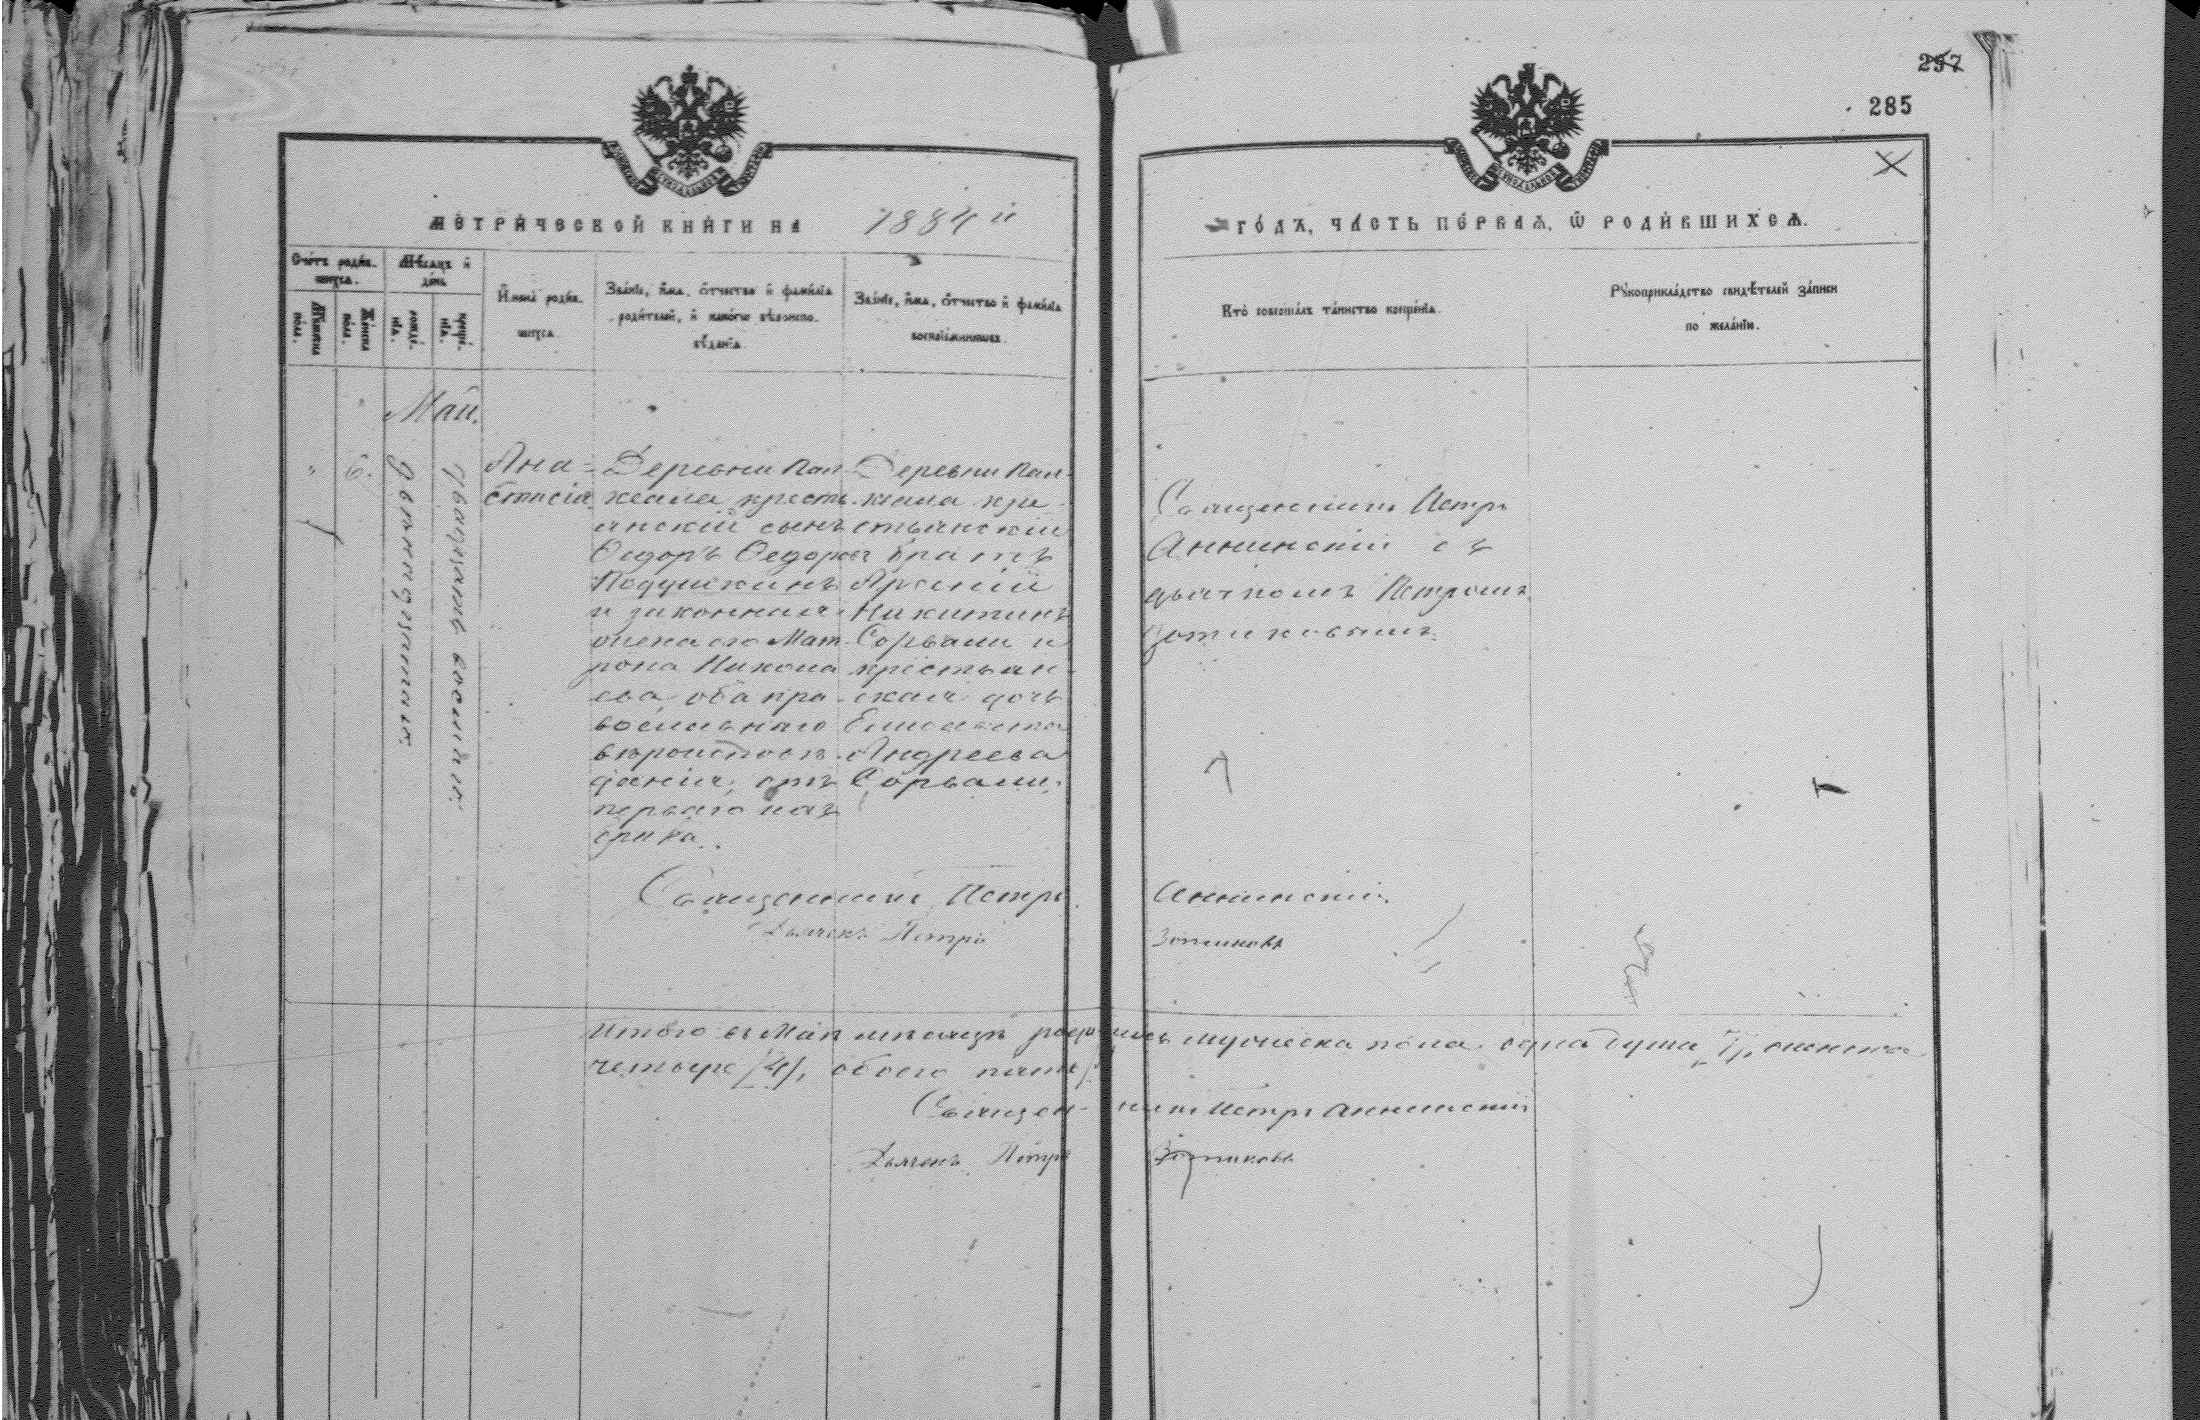 297
285
МЕТРИЧЕСКОЙ КНИГИ НА 1884 й
ГОДЪ, ЧАСТЬ ПЕРВАЯ, Ѡ РОДИВШИХСЯ.
Счетъ родившихся.
Мѣсяцъ и день
Мужеска пола.
Женска пола.
рожденія.
крещенія.
Имена родившихся.
Званіе, имя, отчество и фамилія
родителей, и какогω вѣроиспо-
вѣданія.
Званіе, имя, отчество и фамилія
воспріемниковъ.
Кто совершалъ таинство крещенія.
Рукоприкладство свидѣтелей записи
по желанію.
Май.
" 6.
девятнадцатаго.
двадцать восьмаго.
Ана-
стасія
Деревни
крестъ-
янский сынъ
Ѳедоръ Ѳедоровъ
Подушкинъ
и законная
жена его Мат-
рона Никола-
ева, оба пра-
вославнаго
вѣроисповѣ-
данія, отъ
перваго
брака.
Деревни
кре-
стьянский
братъ
Арсений
Никитинъ
Сорвали и
крестьян-
ская дочь
Елисавета
Андреева
Сорвали.
Священникъ Петръ
Аннинский съ
дьячкомъ Петромъ
Зотиковымъ.
Священникъ Петръ Аннинский.
Дьячекъ Петръ Зотиковъ
Итого въ Маѣ мѣсяцѣ родилось мужеска пола одна душа /1/, женска
четыре /4/, обоего пять /
Священникъ Петръ Аннинский
Дьячекъ Петръ Зотиковъ